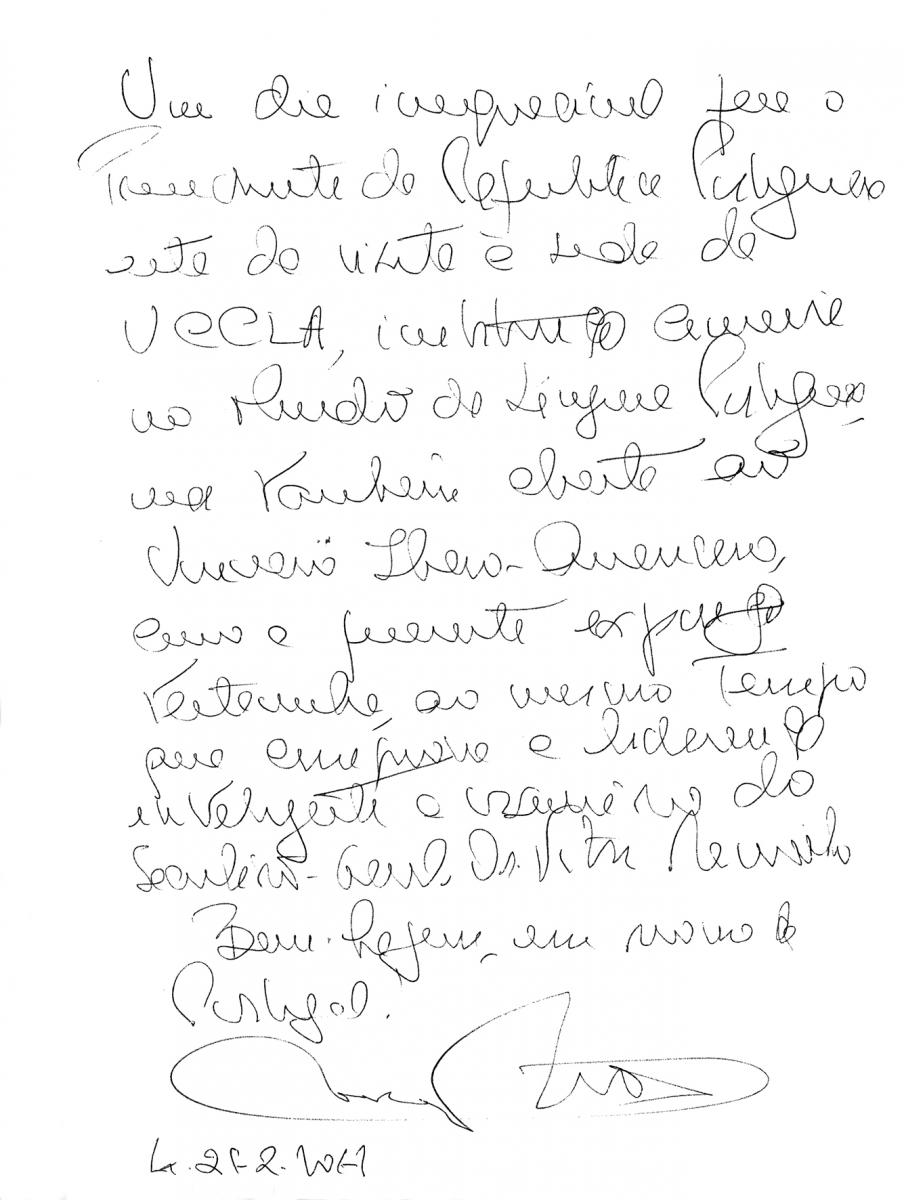 Um dia inesquecível para o
Presidente da República Portuguesa
este da visita à sede da
UCCLA, instituição cimeira
no Mundo da Língua Portuguesa
mas também aberta ao
Universo Ibero-Americano,
como a presente exposição
testemunha, ao mesmo tempo
que comprova a liderança
inteligente e visionária do
Secretário-Geral, Dr. Vitor Ramalho
Bem-hajam, em nome de
Portugal.